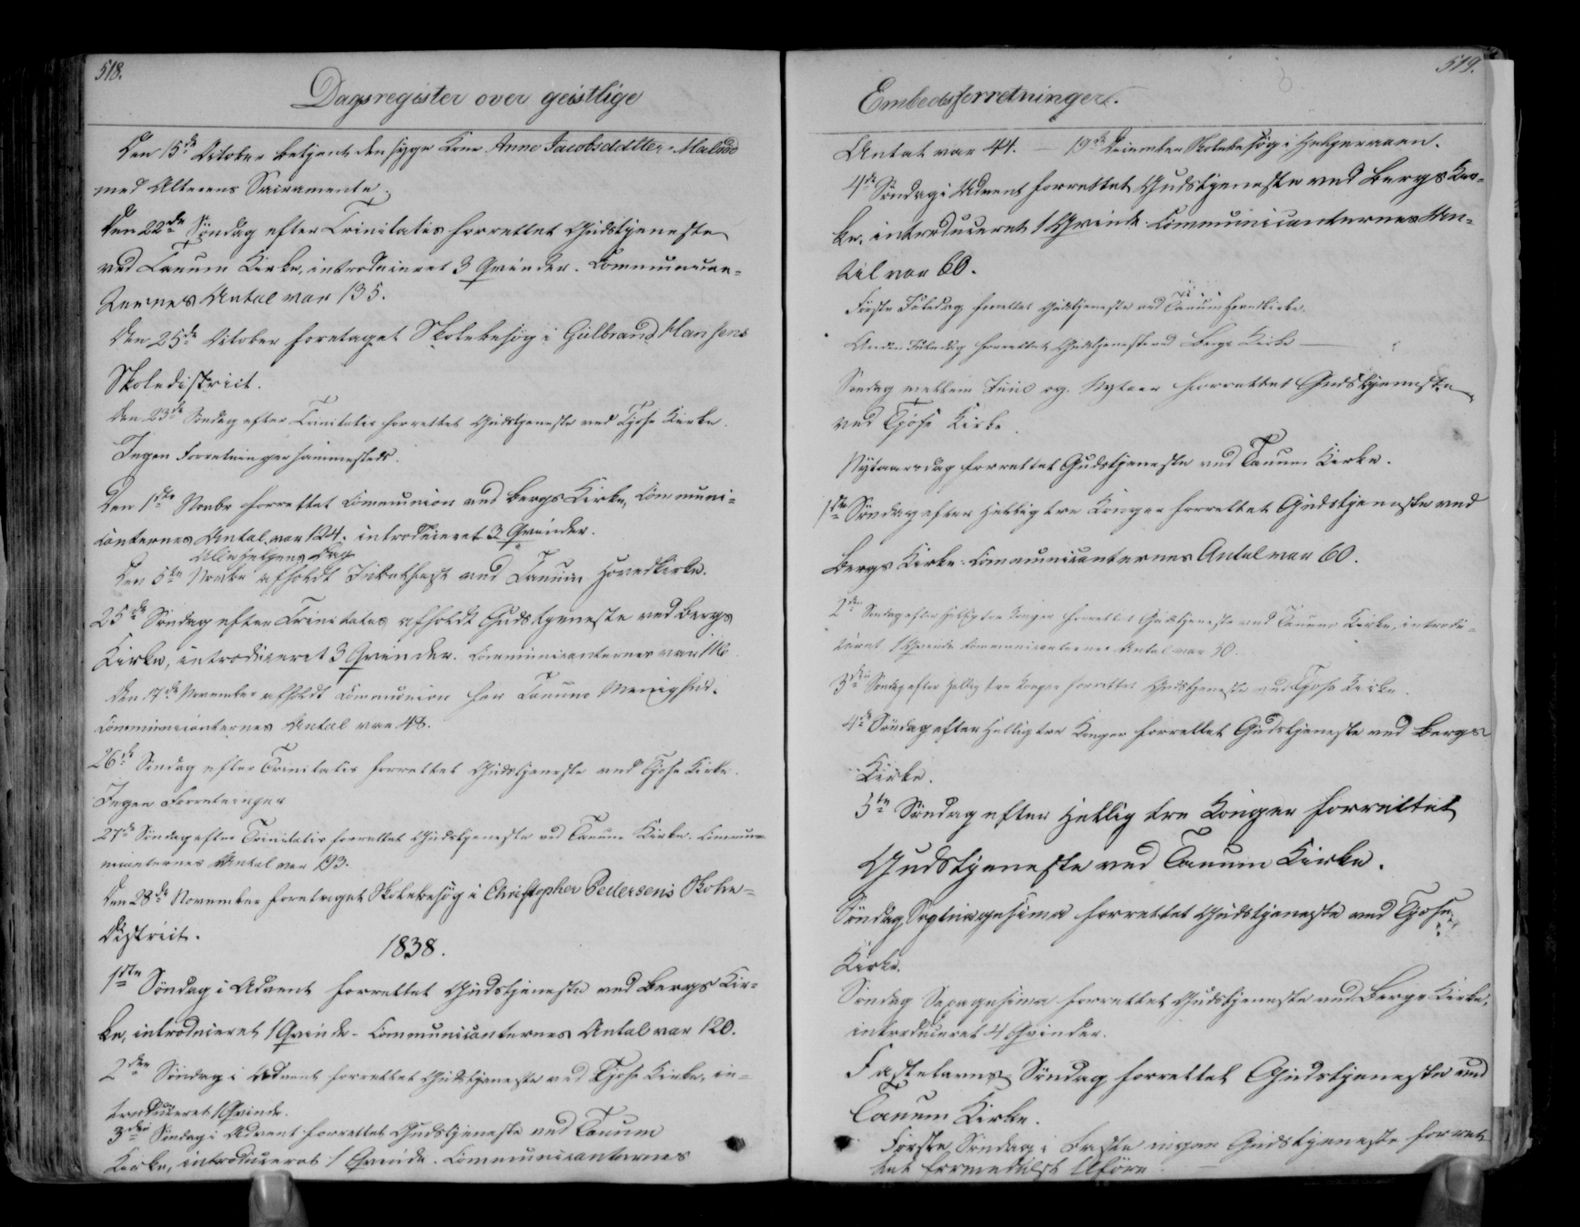 518.
Dagsregister over geistlige
Den 15de October betjent den syge Kone Anne Jacobsdatter Malmö
med Alterens Sacramente.
Den 22de Söndag efter Trinitatis forrettet Gudstjeneste
ved Tanum Kirke, introduceret 3 Qvinder. Communican-
ternes Antal var 135.
Den 25de October foretaget Skolebesög i Gulbrand Hansens
Skoledistrict.
Den 23de Söndag efter Trinitatis forrettet Gudstjeneste ved Tjose Kirke.
Ingen Forretninger sammesteds.
Den 1ste Novbr forrettet Communion ved Bergs Kirke, Communi-
canternes Antal var 124. introduceret 2 Qvinder.
Allehelgens Dag
Den 5te Novbr afholdt ved Tanum Hovedkirke.
25de Söndag efter Trinitatis afholdt Gudstjeneste ved Bergs
Kirke, introduceret 3 Qvinder. Communicanternes var 116
Den 17de November afholdt Communion for Tanums Menighed.
Communicanternes Antal var 48.
26de Söndag efter Trinitatis forrettet Gudstjeneste ved Tjose Kirke.
Ingen Forretninger
27de Söndag efter Trinitatis forrettet Gudstjeneste ved Tanum Kirke. Commu-
nicanternes Antal var 193.
Den 28de November foretaget Skolebesög i Christopher Pedersens Skole-
District.
1838.
1ste Söndag i Advent forrettet Gudstjeneste ved Bergs Kir-
ke, introduceret 1 Qvinde. Communicanternes Antal var 120.
2den Söndag i Advent forrettet Gudstjeneste ved Tjose Kirke, in-
troduceret 1 Qvinde.
3die Söndag i Advent forrettet Gudstjeneste ved Tanum
Kirke, introduceret 1 Qvinde. Communicanternes
519.
Embedsforretninger.
Antal var 44. — 19de December Skolebesög i Helgeraaen.
4de Söndag i Advent forrettet Gudstjeneste ved Bergs Kir-
ke, introduceret 1 Qvinde. Communicanternes An-
tal var 60.
Förste Juledag forrettet Gudstjeneste ved Tanum Hovedkirke.
Anden Juledag forrettet Gudstjeneste ved Bergs Kirke —
Söndag mellem Juul og Nytaar forrettet Gudstjeneste
ved Tjöse Kirke.
Nytaarsdag forrettet Gudstjeneste ved Tanum Kirke.
1ste Söndag efter Hellig tre Konger forrettet Gudstjeneste ved
Bergs Kirke. Communicanternes Antal var 60.
2den Söndag efter Hellig tre Konger forrettet Gudstjeneste ved Tanum Kirke, introdu-
ceret 1 Qvinde Communicanternes Antal var 50.
3die Söndag efter Hellig tre Konger forrettet Gudstjeneste ved Tjose Kirke.
4de Söndag efter Hellig tre Konger forrettet Gudstjeneste ved Bergs
Kirke.
5te Söndag efter Hellig tre Konger forrettet
Gudstjeneste ved Tanum Kirke.
Söndag Septuagesima forrettet Gudstjeneste ved Tjose
Kirke.
Söndag Sexagesima forrettet Gudstjeneste ved Bergs Kirke,
introduceret 4 Qvinder.
Fastelavns Söndag forrettet Gudstjeneste ved
Tanum Kirke.
Förste Söndag i Fasten ingen Gudstjeneste forret-
tet formedelst Uföre